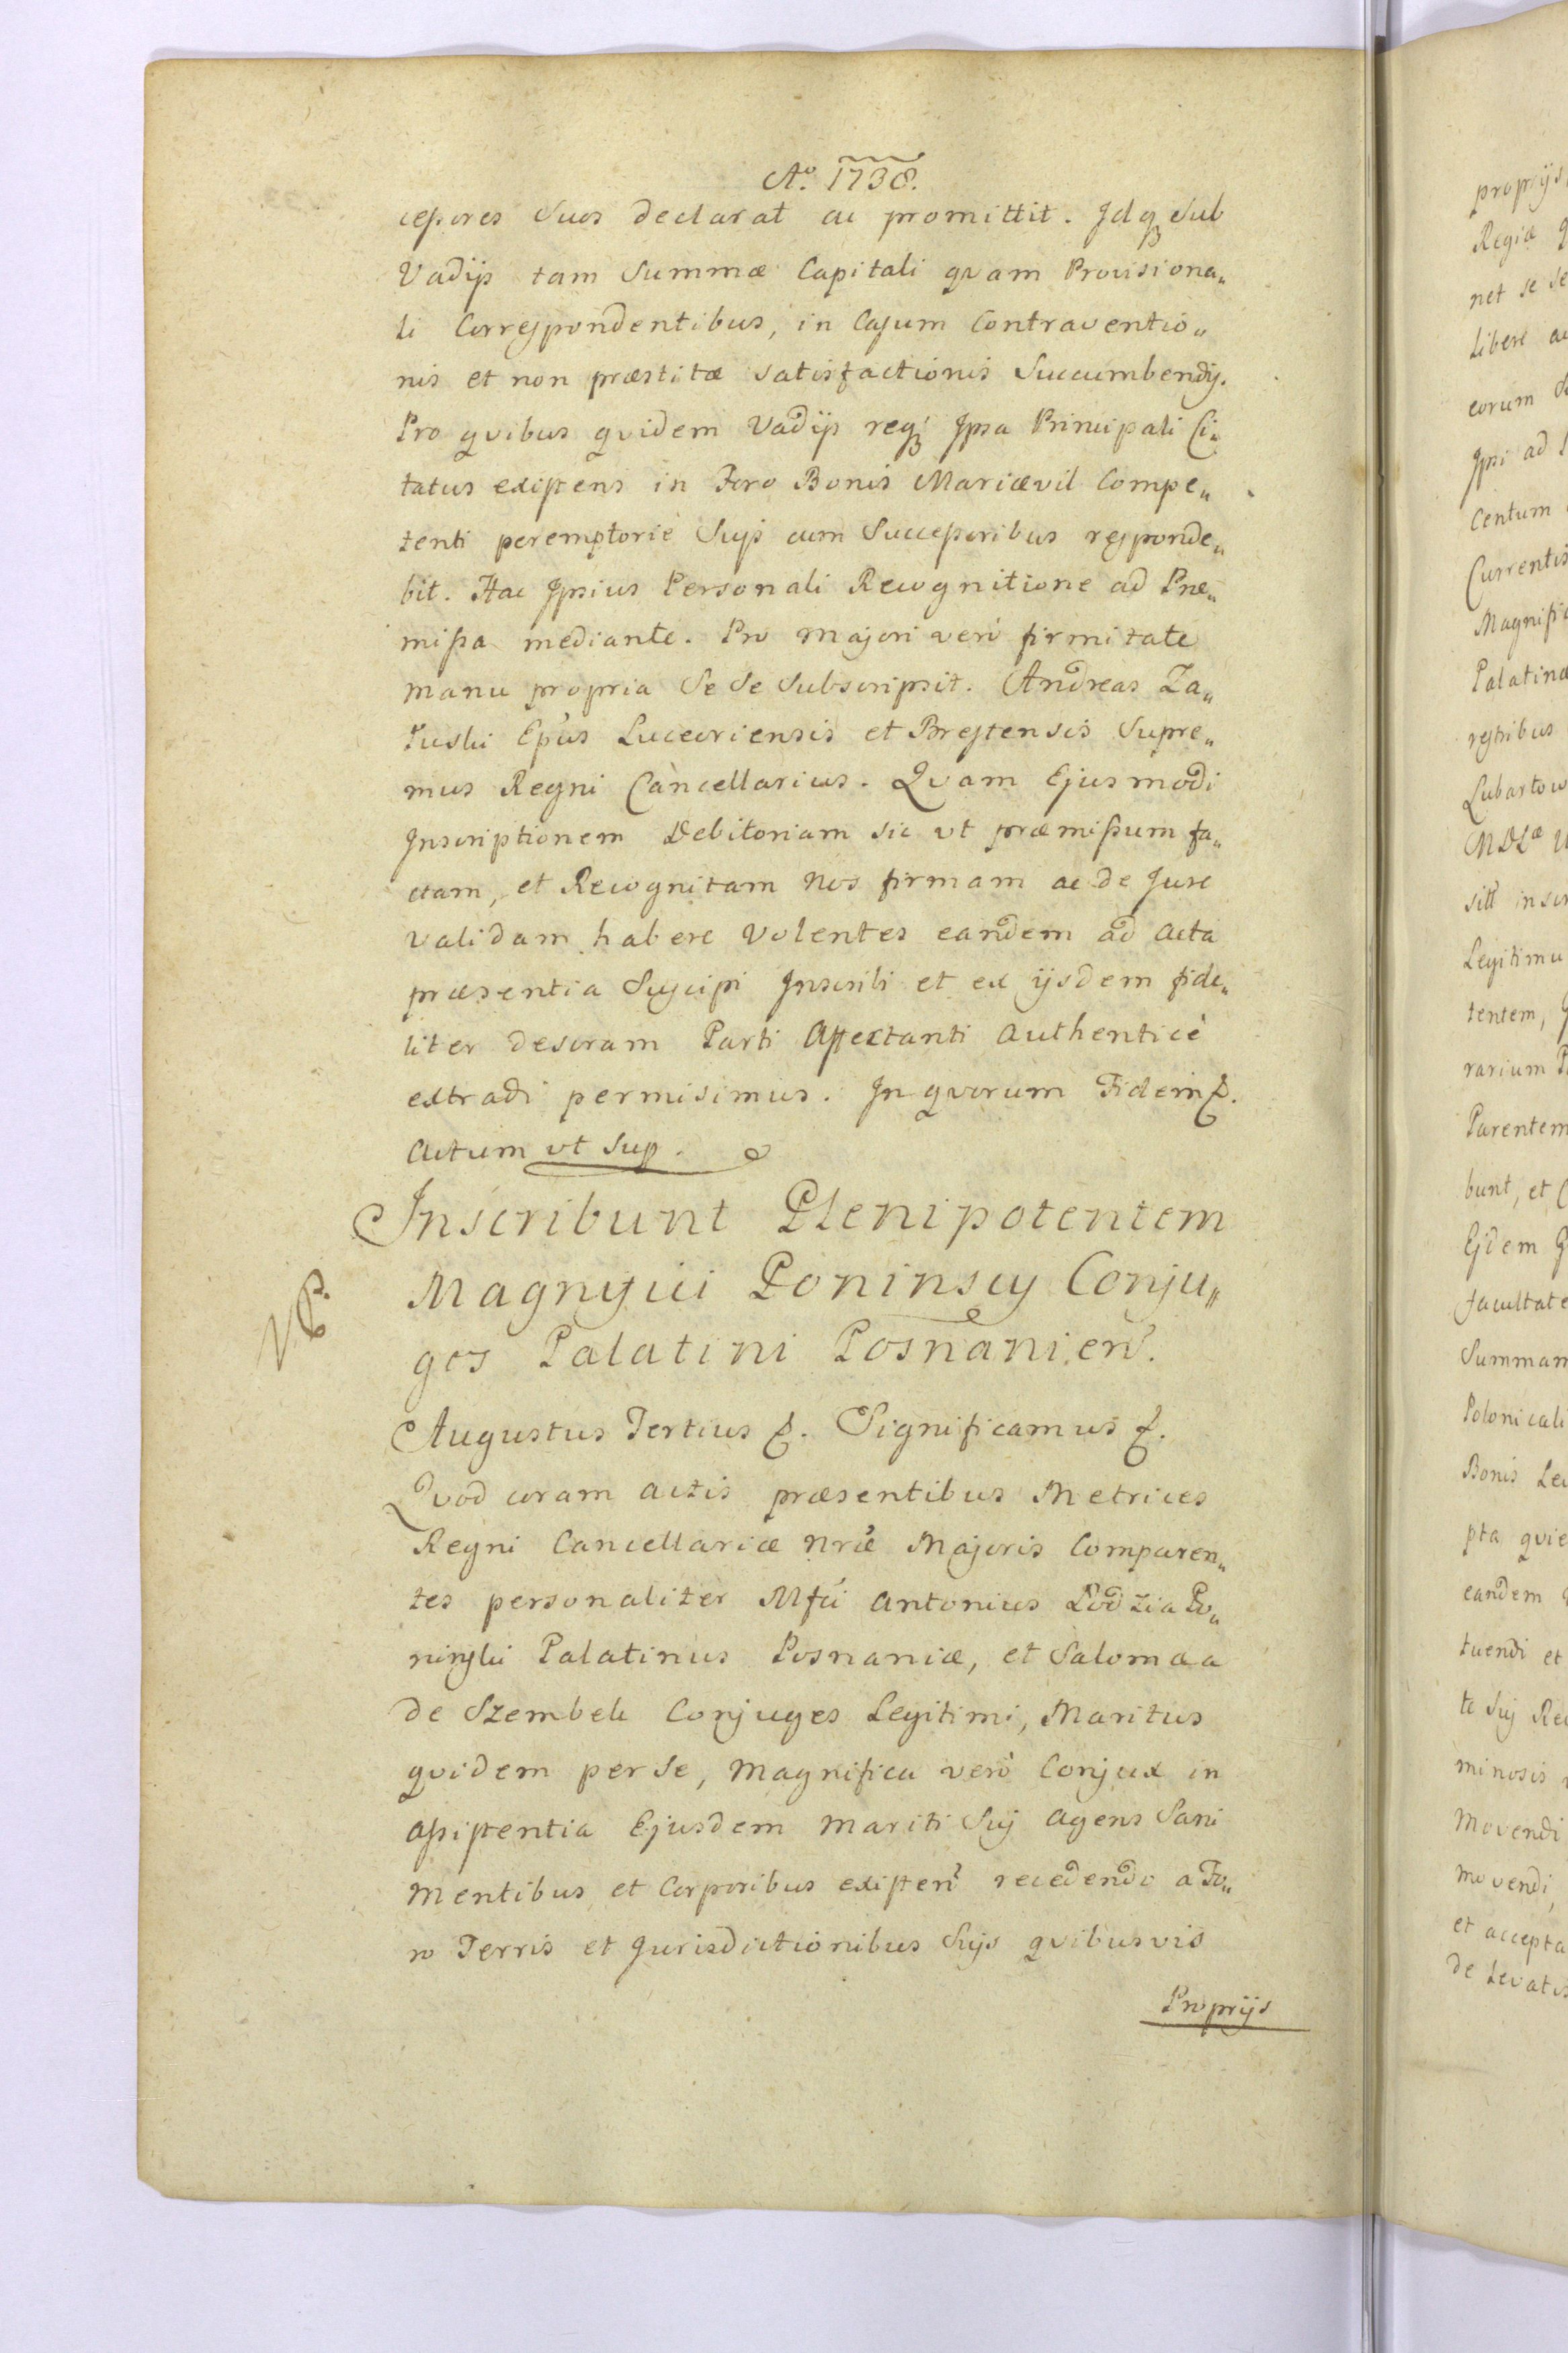 Aº. 1738.
cessores Suos declarat ac promittit. Idq₃ Sub
Vadijs tam Summæ Capitali qvam Provisiona„
li Correspondentibus, in Casum Contraventio„
nis et non præstitæ satisfactionis Succumbendij.
Pro qvibus qvidem Vadijs req₃ Ipsa Principali Ci„
tatus existens in Foro Bonis Mariævil Compe„
tenti peremptorie Suis cum Successoribus responde„
bit. Hac Ipsius Personali Recognitione ad Præ„
missa mediante. Pro majori verò firmitate
manu propria Se Se Subscripsit. Andreas Za„
łuski Epus Luceoriensis et Brestensis Supre„
mus Regni Cancellarius. Qvam Ejusmodi
Inscriptionem Debitoriam sic ut præmissum fa„
ctam, et Recognitam Nos firmam ac de Jure
validam habere Volentes eandem ad Acta
præsentia Suscipi Inscribi et ex ijsdem fide„
liter descram Parti Affectanti Authenticè
extradi permisimus. In qvorum Fidem &.
Actum ut Sup.
Inscribunt Plenipotentem
Magnifici Poninscy Conju„
ges Palatini Posnanien̄.
Augustus Tertius &. Significamus &.
Qvod coram Actis præsentibus Metrices
Regni Cancellariæ Nræ Majoris Comparen„
tes personaliter Mfci Antonius Łodzia Po„
ninski Palatinus Posnaniæ, et Salomæa
de Szembek Conjuges Legitimi, Maritus
qvidem per Se, Magnifica verò Conjux in
Assistentia Ejusdem Mariti Sui Agens Sani
Mentibus et Corporibus existen̄ recedendo a Fo„
ro Terris et Jurisdictionibus Suis qvibusvis
Proprijs
propijs
Regiæ
net se se
Libere ac
eorum
Ipsi ad
Centum
Currentis
Magnific
Palatinæ
restibus
Lubartow
sitt inscr
Legitimu
tentem,
rarium
Parentem
bunt, et
Ejdem
facultate
Summam
Polonicali
Bonis Le
pta qvie
eandem
tuendi et
te Sui Re
minosis
Movendi
movendi,
et accepta
de Levatis